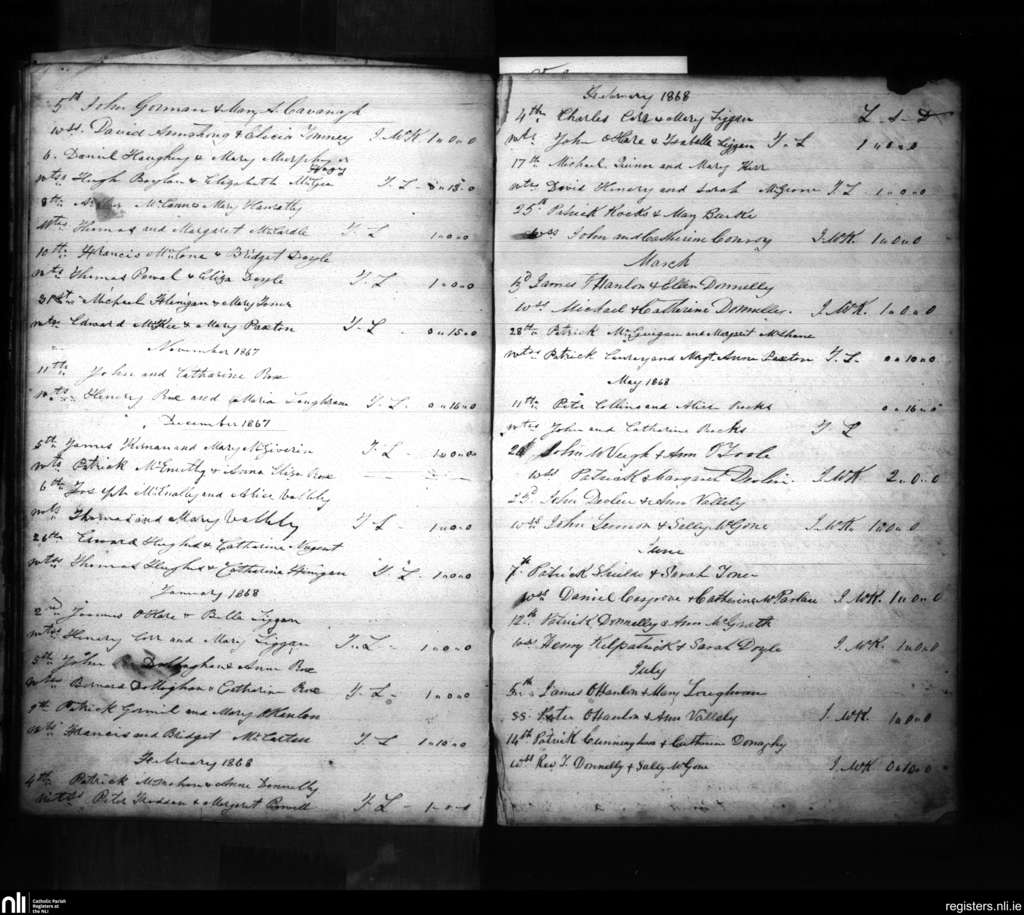 5th John Gorman & Mary A. Cavanagh
wss. David Armstrong & Elicia Tomney J. McK. 1..0..0
6. Daniel Haughey & Mary Murphy or
wtss Hugh Boylan & Elizabeth McGee T. L 0..15..0
8th McCann & Mary Hanratty
wtss Thomas and Margaret McArdle T. L 1..0..0
10th Francis McCone & Bridget Doyle
wts Thomas Powal & Eliza Doyle T. L 1..0..0
31st Micheal Finigan & Mary Toner
wts. Edward McKee & Mary Paxton T. L 0..15..0
November 1867
11th John and Catharine Roe
wtss Henery Roe and Maria Loughran T. L. 0..16..0
December 1867
5th James Kernan and Mary McGiverin T. L 1..0..0
wts Patrick & Anna Eliza Roe
6th Joseph McAnally and Alice Vallely
wts Thomas and Mary Vallely T. L 1..0..0
26th Edward Hughes & Catharine Nugent
wtss Thomas Hughes & Catharine Finigan T. L. 1..0..0
January 1868
2nd O'Hare & Bella Liggan
wtss Henery Corr and Mary Liggan T. L. 1..0..0
5th John Dollaghan & Anne Roe
wtss Bernard Dollaghan & Catharine Roe T. L 1..0..0
9th Patrick Gormil and Mary O'Hanlon
wts Francis and Bridget T. L 1..10..0
February 1868
4th Patrick McMahon & Anne Donnelly
wtss Peter & Margaret Powell T. L 1..0..0
February 1868
4th Charles Corr & Mary Liggan L S D
wts John O'Hare & Isabella Liggan T. L 1..0..0
17th Michael Quinn and Mary Kerr
wtss David Henery and Sarah McGeown T. L 1..0..0
25th Patrick Rocks & Mary Burke
wss John and Catherine Conroy J. McK. 1..0..0
March
James O'Hanlon & Ellen Donnelly
wss Michael & Catherine Donnelly. J. McK. 1..0..0
28th Patrick McGuigan and Margaret McShane
wtss Patrick and Margt. Anne Paxton T. L. 0..10..0
May 1868
11th Peter Collins and Alice Rocks 0..16..0
wtss John and Catharine Rocks T. L
John McVeigh & Ann O'Toole
wss Patrick & Margaret Devlin J. McK 2..0..0
25th John Devlin & Ann Vallely
wss John & Sally McGone J. McK. 1..0..0
June
7th Patrick Shields & Sarah Toner
wss Daniel Cosgrove & Catherine McParlan J. McK. 1..0..0
12th Patrick Donnelly & Ann McGrath
wss Henry Kilpatrick & Sarah Doyle J. McK. 1..0..0
July
5th James O'Hanlon & Mary Loughran
ss. Peter O'Hanlon & Ann Vallely J. McK. 1..0..0
14th Patrick Cunningham & Catherine Donaghy
wss Rev. T. Donnelly & Sally McGone J. McK 0..10..0
nli
Catholic Parish
Registers at
the NLI
registers.nli.ie